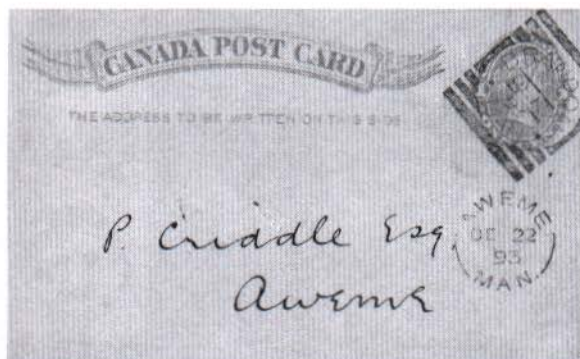 CANADA POST CARD
THE ADDRESS TO BE WRITTEN ON THIS SIDE
P. Criddle Esq.
Aweme
AWEME
DE 22
93
MAN.